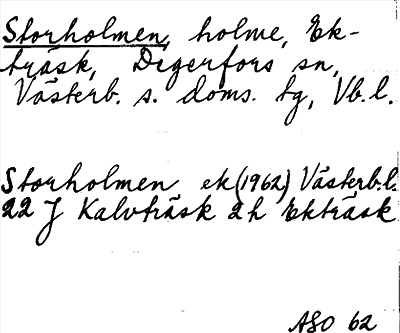 Storholmen, holme, Ek-
träsk, Degerfors sn,
Västerb. s. doms. tg, Vb.l.
Storholmen ek (1962) Västerb.l.
22 J Kalvträsk 2h Ekträsk
ASO 62